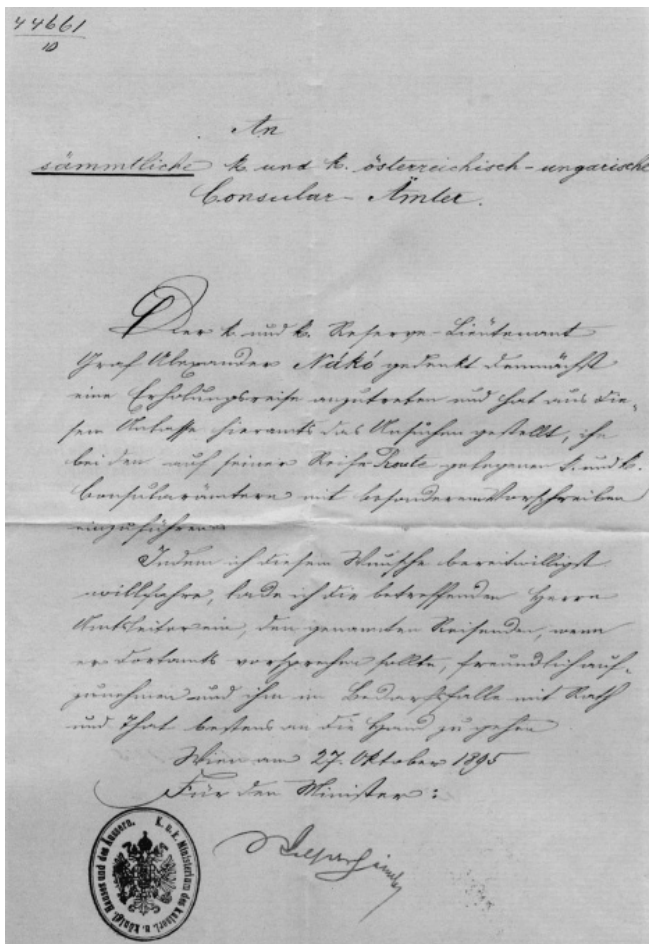 44661
10
An
sämmtliche k. und k. österreichisch-ungarische
Consular-Ämter.
Der k. und k. Reserve-Lieutenant
Graf Alexander Nákó gedenkt demnächst
eine Erholungsreise anzutreten und hat aus die-
sem Anlasse hieramts das Ansuchen gestellt, ihn
bei den auf seiner Reise Route gelegenen k. und k.
Consularämtern mit besonderem Vorschreiben
einzuführen.
Indem ich diesem Wunsche bereitwilligst
willfahre, lade ich die betreffenden Herrn
Amtsleiter ein, den genannten Reisenden, wenn
er dortamts vorsprechen sollte, freundlich auf-
zunehmen und ihm im Bedarfsfalle mit Rath
und That bestens an die Hand zu gehen
Wien am 27. Oktober 1895
Für den Minister:
K. u. k. Ministerium des kaiserl. u. königl. Hauses und des Äussern.